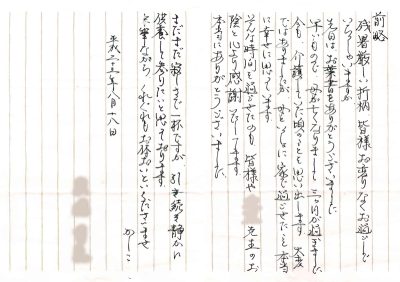 前略
残暑厳しい折柄 皆様お変りなくお過しで
いらっしゃいますか
先日は お葉書をありがとうございました
早いもので 母が亡くなりまして 三ヶ月が過ぎました
今も 介護していた頃のことを思い出します 大変
ではありましたが 母といっしょに 家で過ごせたこと 本当
に幸せに思っています
そんな時間を過せたのも 皆様や 先生のお
陰と心より感謝いたしてます
本当にありがとうございました
まだまだ寂しさで一杯ですが 引き続き静かに
供養して参りたいと思っております
乍筆ながら くれぐれもお体おいといくださいませ
かしこ
平成二十三年八月十八日